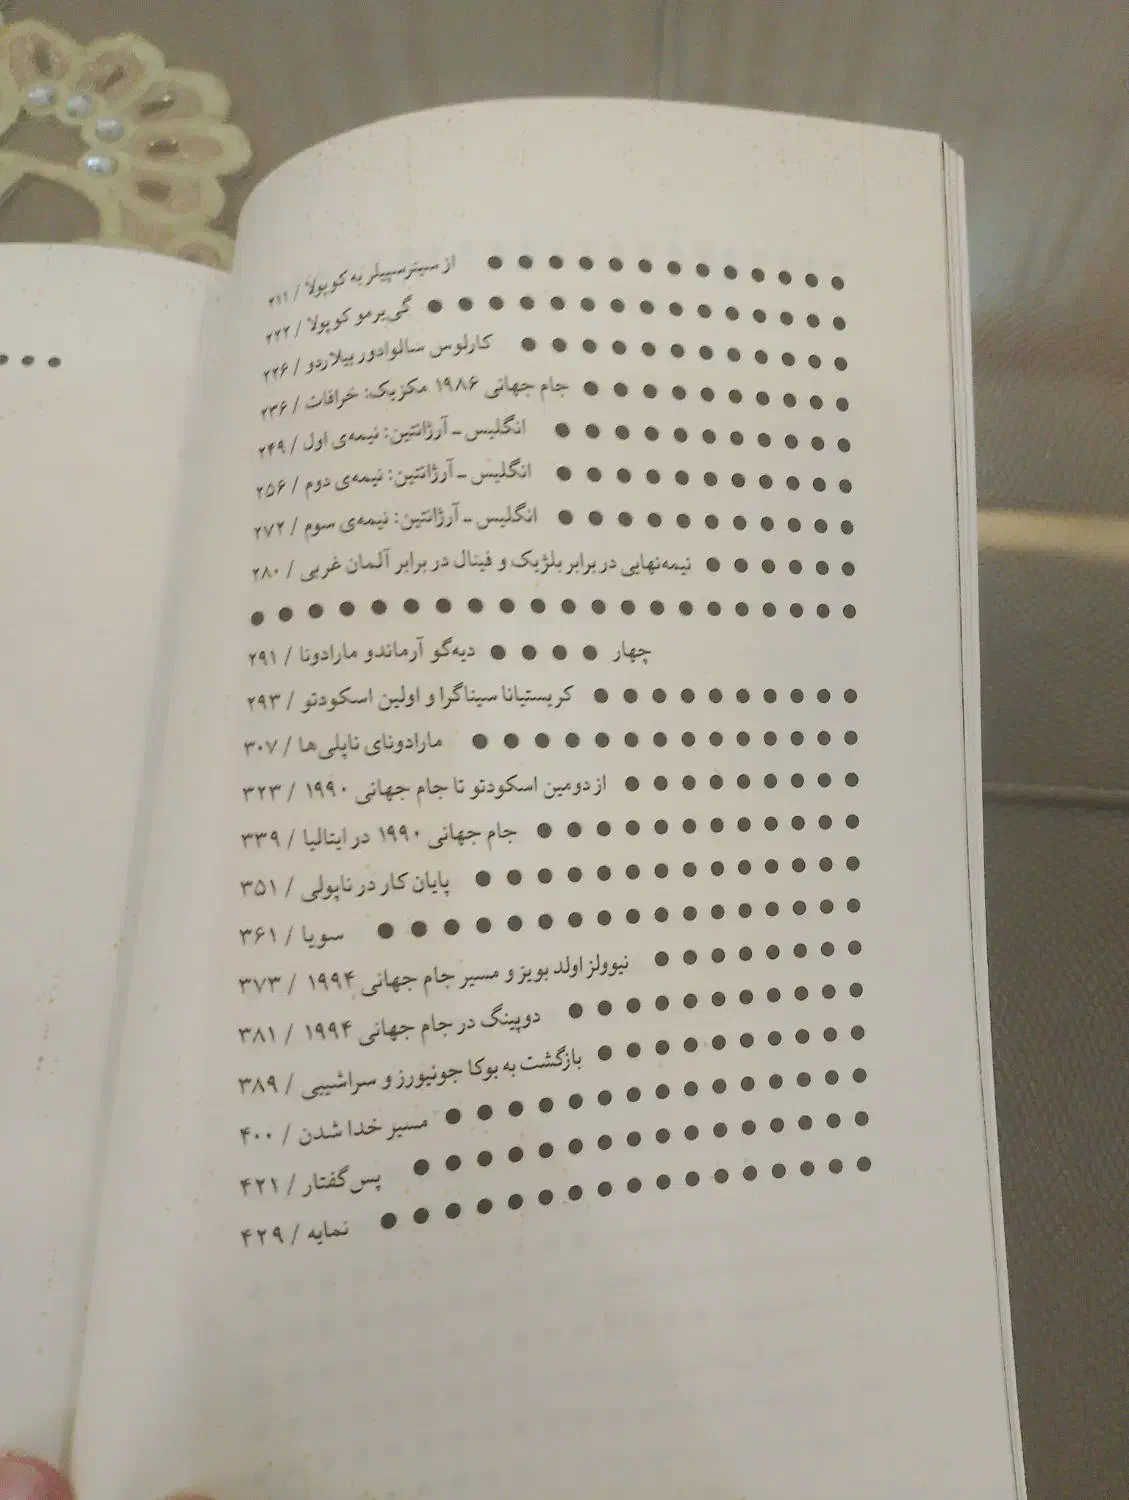 از سیترسپیلر به کوپولا / ۲۱۱
گی‌یرمو کوپولا / ۲۲۲
کارلوس سالوادور بیلاردو / ۲۲۶
جام جهانی ۱۹۸۶ مکزیک: خرافات / ۲۳۶
انگلیس ـ آرژانتین: نیمه‌ی اول / ۲۴۹
انگلیس ـ آرژانتین: نیمه‌ی دوم / ۲۵۶
انگلیس ـ آرژانتین: نیمه‌ی سوم / ۲۷۲
نیمه‌نهایی در برابر بلژیک و فینال در برابر آلمان غربی / ۲۸۰
چهار دیه‌گو آرماندو مارادونا / ۲۹۱
کریستیانا سیناگرا و اولین اسکودتو / ۲۹۳
مارادونای ناپلی‌ها / ۳۰۷
از دومین اسکودتو تا جام جهانی ۱۹۹۰ / ۳۲۳
جام جهانی ۱۹۹۰ در ایتالیا / ۳۳۹
پایان کار در ناپولی / ۳۵۱
سویا / ۳۶۱
نیوولز اولد بویز و مسیر جام جهانی ۱۹۹۴ / ۳۷۳
دوپینگ در جام جهانی ۱۹۹۴ / ۳۸۱
بازگشت به بوکا جونیورز و سراشیبی / ۳۸۹
مسیر خدا شدن / ۴۰۰
پس‌گفتار / ۴۲۱
نمایه / ۴۲۹